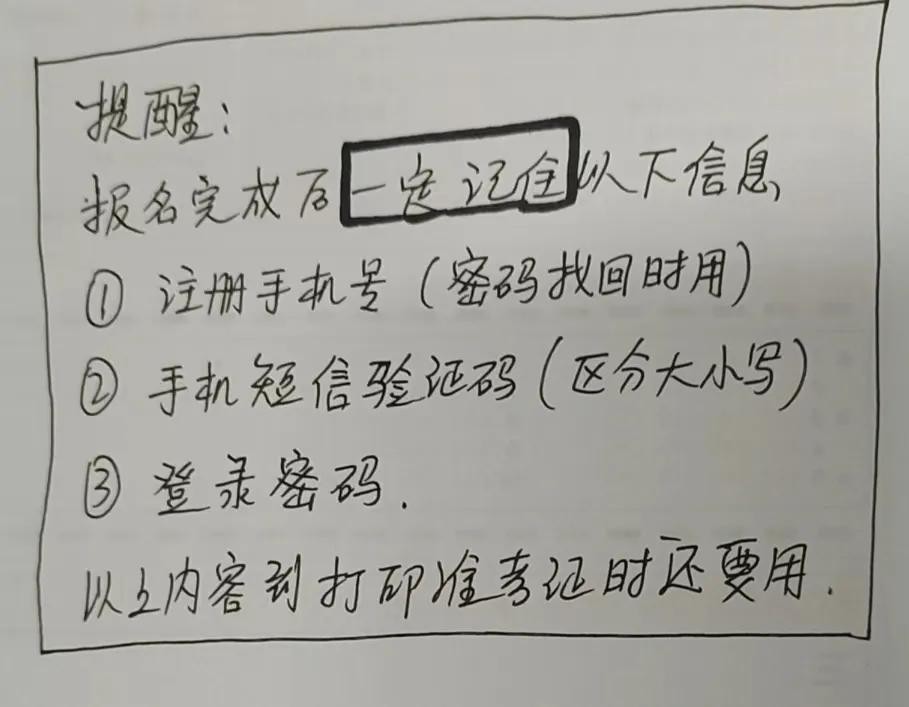 提醒：
报名完成后一定记住以下信息，
① 注册手机号（密码找回时用）
② 手机短信验证码（区分大小写）
③ 登录密码.
以上内容到打印准考证时还要用.